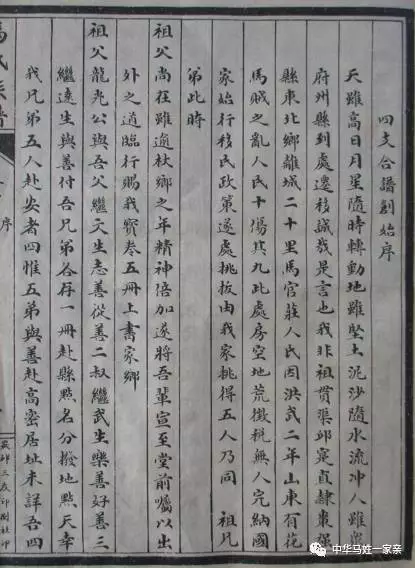 四支合譜創始序
天雖高日月星隨時轉動地雖堅土泥沙隨水流冲人雖處
府州縣到處遷移誠哉是言也我非祖貫渠邱寔直隷棗强
縣東北鄉離城二十里馬官莊人民因洪武二年山東有花
馬賊之亂人民十傷其九此處房空地荒徵稅無人完納國
家始行移民政策逐處挑拔由我家挑得五人乃同 祖兄
弟此時
祖父尚在雖逾杖鄉之年精神倍加遂將吾輩宣至堂前囑以出
外之道臨行賜我寶卷五冊上書家鄉
祖父龍光公與吾父繼文生志善從善二叔繼武生樂善好善三
繼遠生與善付吾兄弟各存一冊赴縣點名分撥地點天幸
我兄弟五人赴安者四惟五弟與善赴高密居址未詳吾四
序
三友印刷社印
中华马姓一家亲